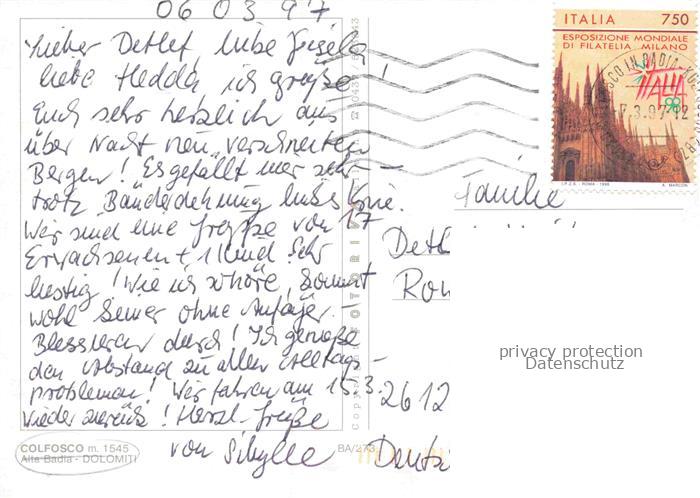 06 03 97
Lieber Detlef, liebe Gisela
liebe Hedda, ich grüße
Euch sehr herzlich aus
über Nacht neu verschneiten
Bergen! Es gefällt mir sehr –
trotz Bänderdehnung linkes Knie.
Wir sind eine Gruppe von 17
Erwachsenen + 1 Kind. Sehr
lustig! Wie ich höre, kommt
wohl keiner ohne Anfänger-
Blessuren durch! Ich genieße
den Abstand zu allen Alltags-
problemen! Wir fahren am 15.3.
wieder zurück! Herzl. Grüße
von Sibylle
COLFOSCO m. 1545
Alta Badia - DOLOMITI
BA/273
ITALIA 750
ESPOSIZIONE MONDIALE
DI FILATELIA MILANO
ITALIA
98
I.P.Z.S. - ROMA - 1996
3.97-12
Familie
Detl
Ron
2612
Deuts
privacy protection
Datenschutz